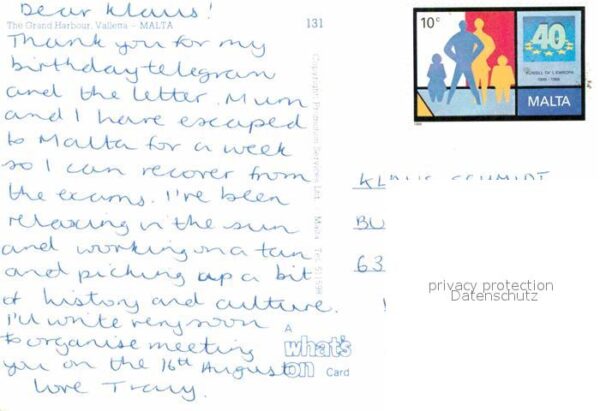 Dear Klaus!
The Grand Harbour, Valletta - MALTA
131
Thank you for my
birthday telegram
and the letter. Mum
and I have escaped
to Malta for a week
so I can recover from
the exams. I've been
relaxing in the sun
and working on a tan
and picking up a bit
of history and culture.
I'll write very soon
to organise meeting
you on the 16th August
Love Tracy.
A
what's
on Card
10c
40
1949-1989
MALTA
BU
63
privacy protection
Datenschutz